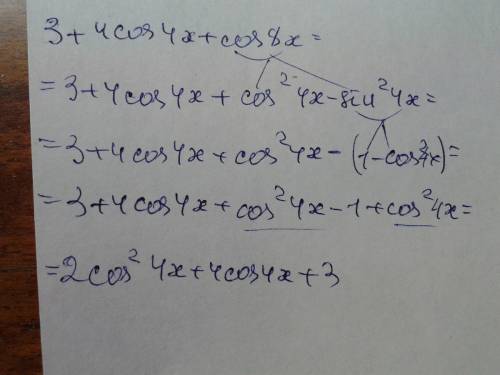 3+4cos4x+cos8x=
=3+4cos4x+cos²4x-sin²4x=
=3+4cos4x+cos²4x-(1-cos²4x)=
=3+4cos4x+cos²4x-1+cos²4x=
=2cos²4x+4cos4x+3